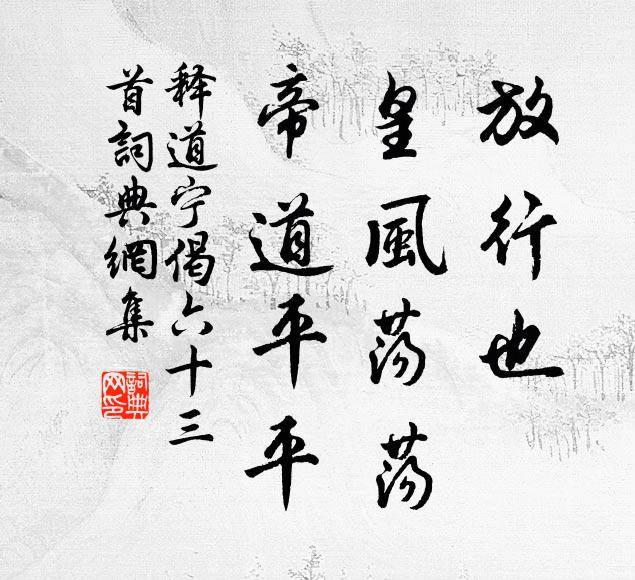 放行也
皇風蕩蕩
帝道平平
释道宁偈六十三
首詞典網集
詞典
网印